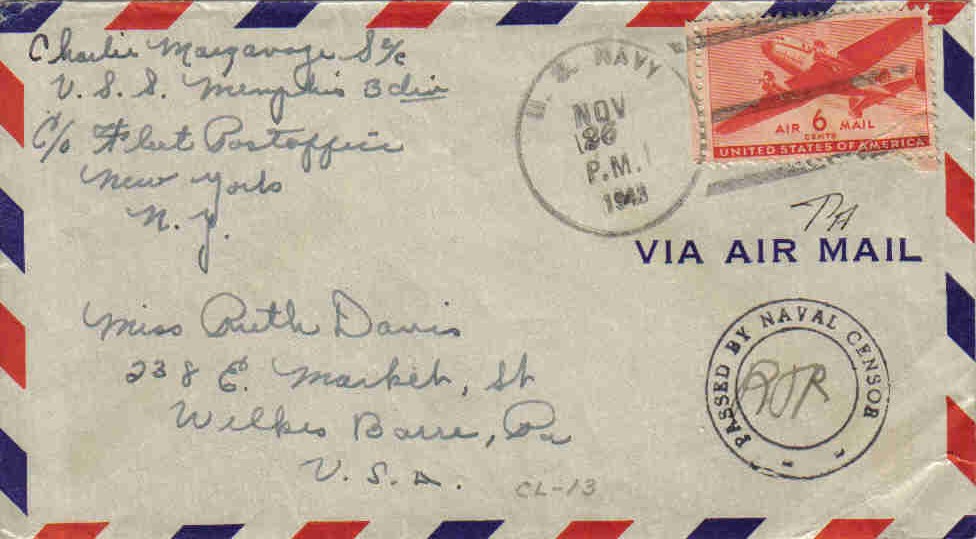 Charlie Margavage S2/c
U. S. S. Memphis 3 div
C/o Fleet Postoffice
New York
N. Y.
U. S. NAVY
NOV
26
P.M.
1943
AIR 6 MAIL
CENTS
UNITED STATES OF AMERICA
VIA AIR MAIL
Miss Ruth Davis
238 E. Market, St
Wilkes Barre, Pa
U. S. A.
PASSED BY NAVAL CENSOR
CL-13